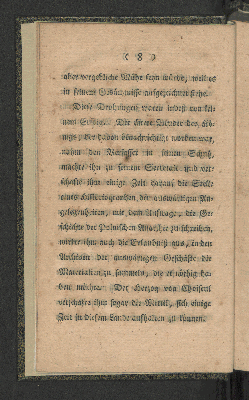 ( 8 )
aber vergebliche Mühe seyn würde, weil es
in seinem Gedächtnisse aufgezeichnet stehe.
Diese Drohungen waren indeß von kei-
nem Erfolg. Der ältere Bruder des Kö-
nigs, der davon benachrichtigt worden war,
nahm den Verfasser in seinen Schutz,
machte ihn zu seinem Secretair und ver-
schafte ihm einige Zeit darauf die Stelle
eines Historiographen der auswärtigen An-
gelegenheiten, mit dem Auftrage, die Ge-
schichte der Polnischen Anarchie zu schreiben,
wirkte ihm auch die Erlaubniß aus, in den
Archiven der auswärtigen Geschäfte die
Materialien zu sammeln, die er nöthig ha-
ben möchte. Der Herzog von Choiseul
verschafte ihm sogar die Mittel, sich einige
Zeit in diesem Lande aufhalten zu können.